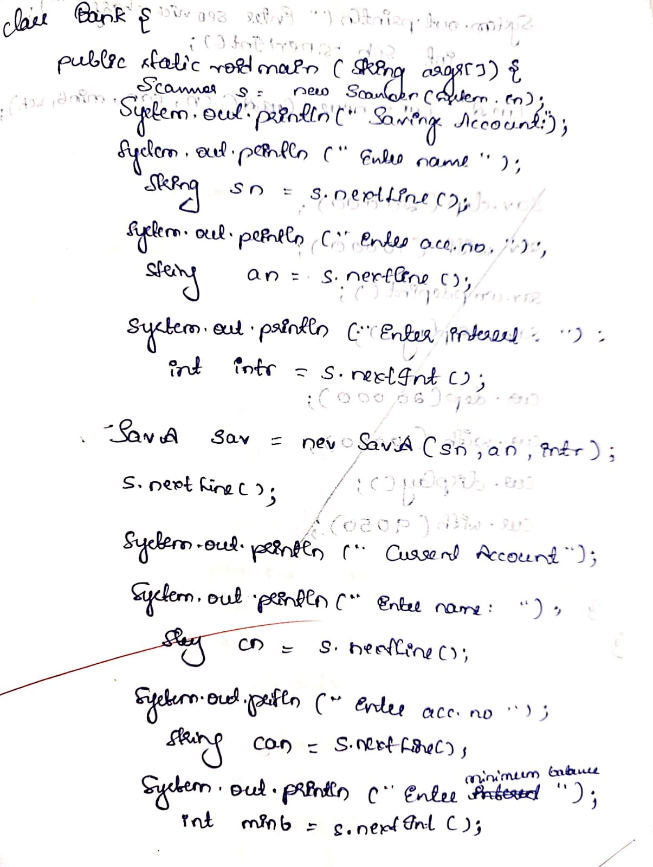 class Bank {
public static void main (String args[]) {
Scanner s = new Scanner (System.in);
System.out.println (" Saving Account:");
System.out.println (" Enter name ");
String sn = s.nextLine ();
System.out.println (" Enter acc.no. ");
String an = s.nextLine ();
System.out.println (" Enter interest : ") ;
int intr = s.nextInt ();
SavA sav = new SavA (sn, an, intr);
s.nextLine ();
System.out.println (" Current Account ");
System.out.println (" Enter name: ");
String cn = s.nextLine ();
System.out.println (" Enter acc. no ");
String can = s.nextLine();
System.out.println (" Enter minimum balance ");
int minb = s.nextInt ();